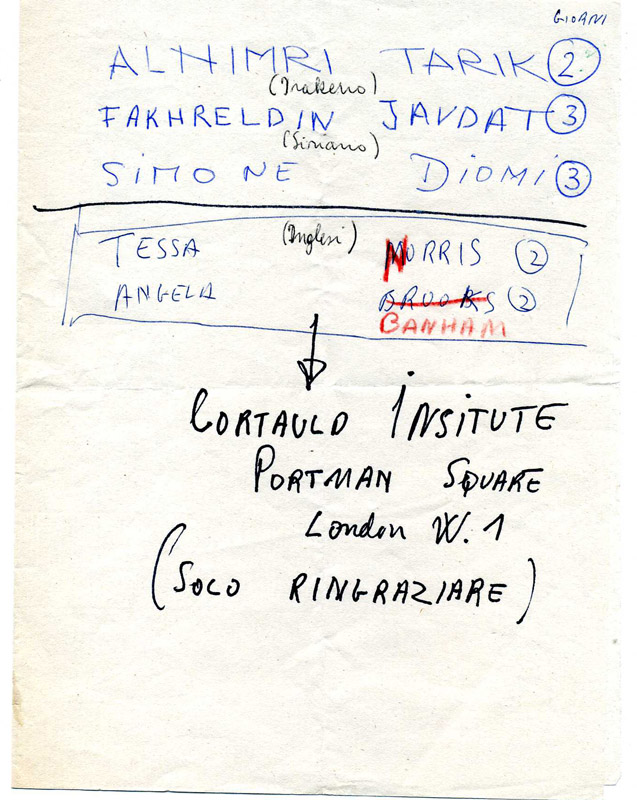 GIORNI
ALNIMRI TARIK 2
(Irakeno)
FAKHRELDIN JAVDAT 3
(Siriano)
SIMONE DIOMI 3
(Inglesi)
TESSA NORRIS 2
ANGELA BROOKS 2
BANHAM
CORTAULD INSITUTE
PORTMAN SQUARE
London W. 1
(SOLO RINGRAZIARE)